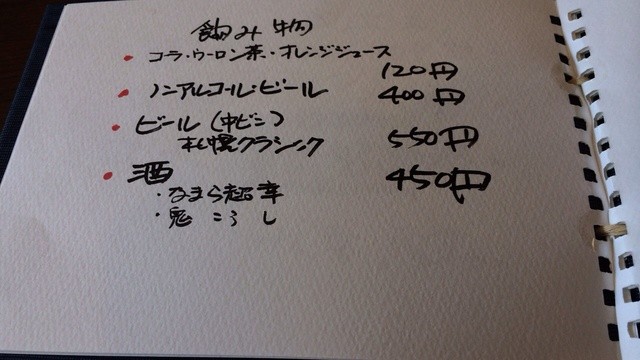 飲み物
・コーラ・ウーロン茶・オレンジジュース
120円
・ノンアルコール・ビール 400円
・ビール(中ビン) 550円
札幌クラシック
・酒 450円
・なまら超辛
・鬼ころし